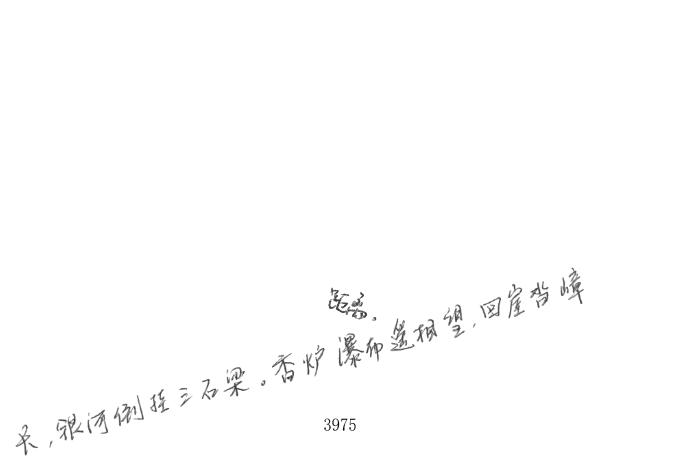 距离。
长,银河倒挂三石梁。香炉瀑布遥相望,回崖沓嶂
3975